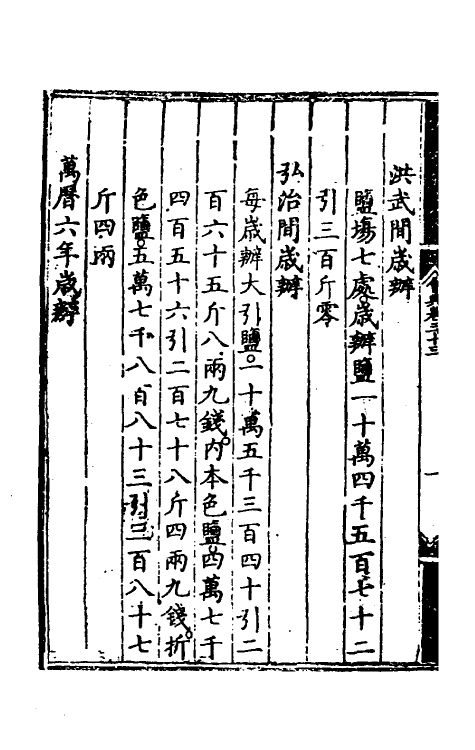 洪武間歲辦
鹽塲七處歲辦鹽一十萬四千五百七十二
引三百斤零
弘治間歲辦
每歲辦大引鹽一十萬五千三百四十引二
百六十五斤八兩九錢内本色鹽四萬七千
四百五十六引二百七十八斤四兩九錢折
色鹽五萬七千八百八十三引三百八十七
斤四兩
萬曆六年歲辦